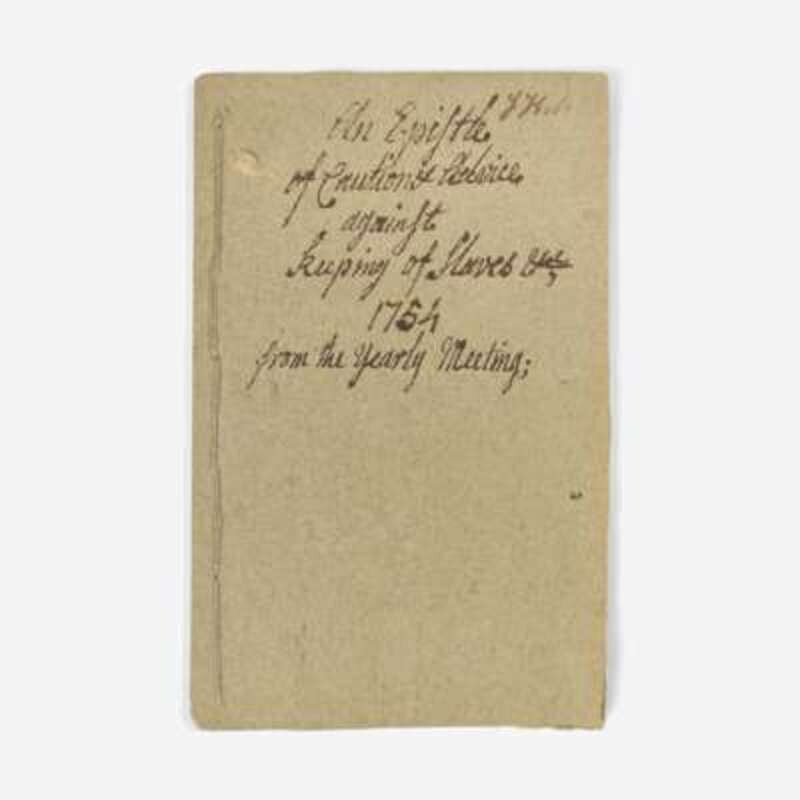 An Epistle
of Caution & Advice
against
keeping of Slaves &c,
1754
from the Yearly Meeting;